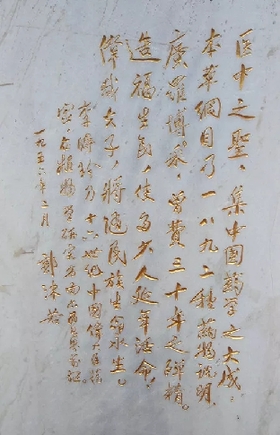 医中之聖，集中国藥学之大成，
本草綱目乃一八九二種藥物説明，
廣羅博采，曾費三十年之殫精。
造福生民，使多少人延年活命，
偉哉夫子，將随民族生命永生。
李時珍乃十六世紀中国偉大医藥学
家，在植物学研究方面亦
一九五六年二月 郭沫若